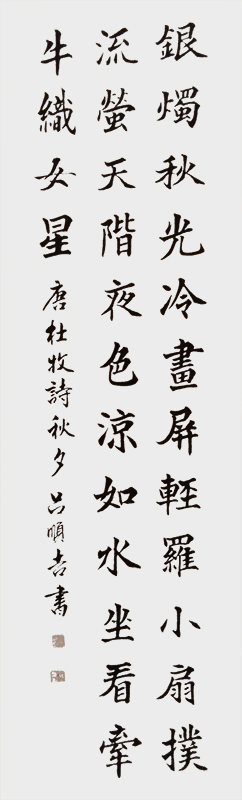 銀燭秋光冷畫屏輕羅小扇撲
流螢天階夜色涼如水坐看牽
牛織女星
唐杜牧詩秋夕呂順吉書